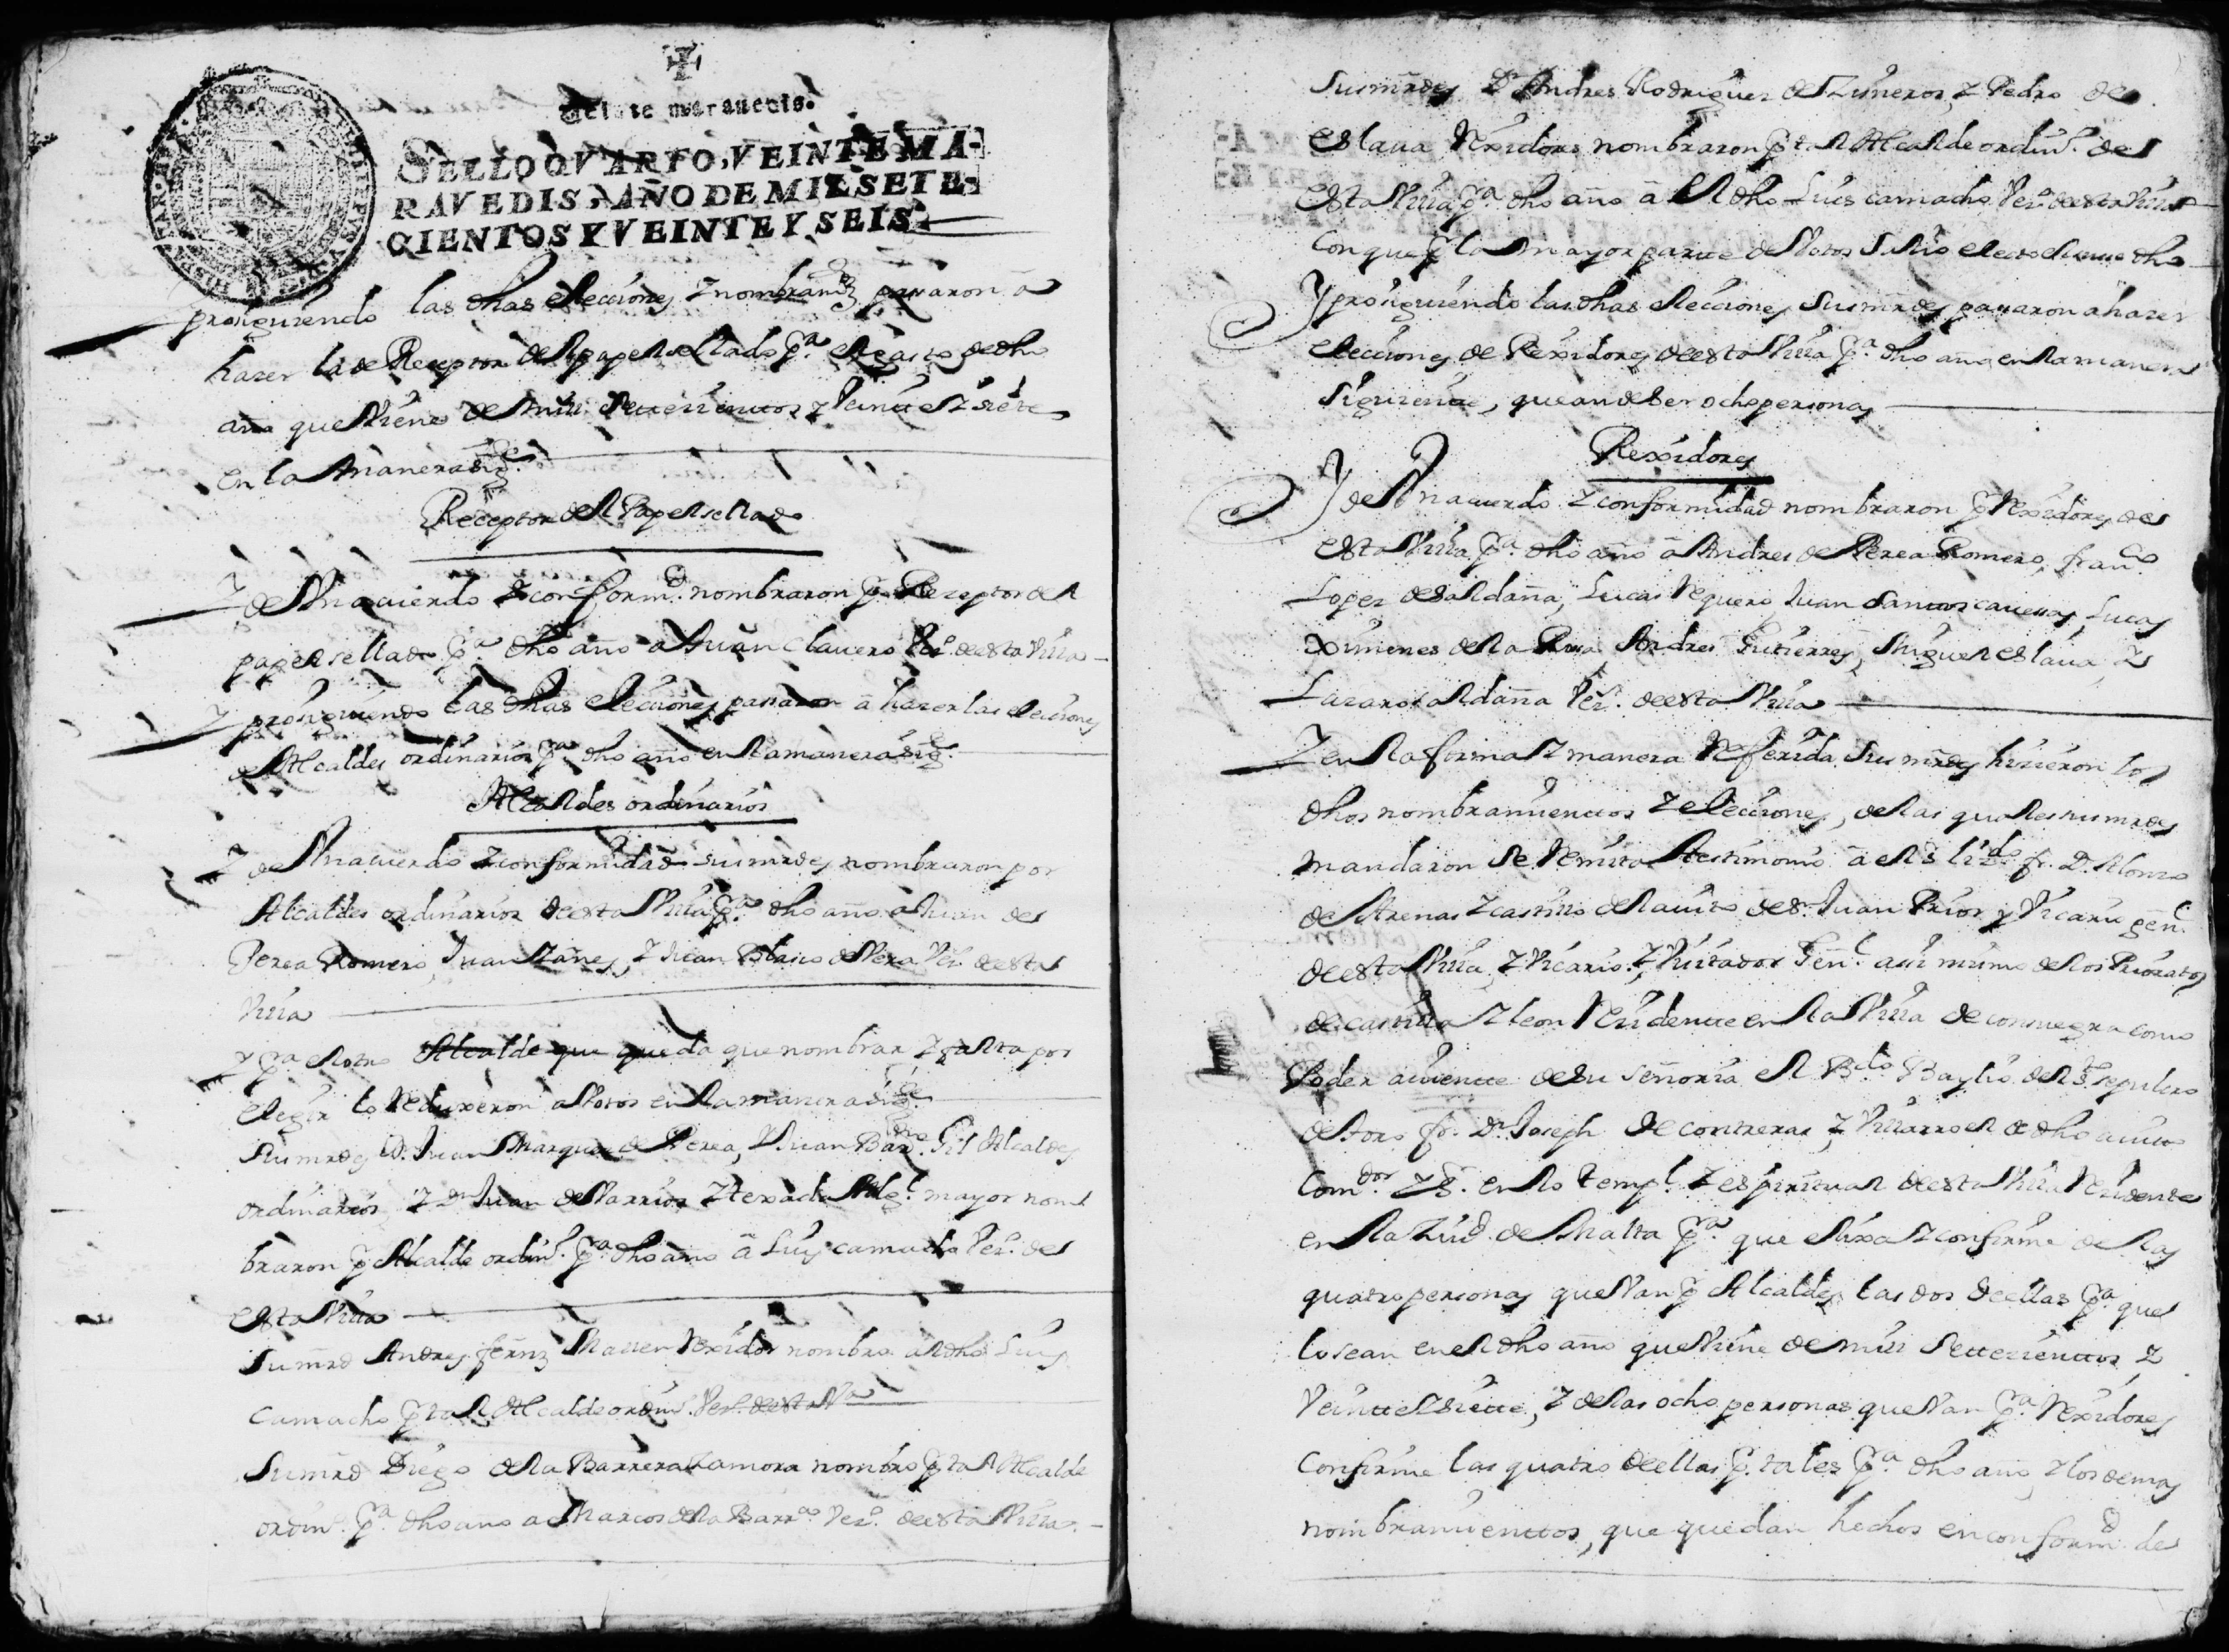 veinte marauedis.
SELLO QVARTO, VEINTE MA-
RAVEDIS, AÑO DE MIL SETE-
CIENTOS Y VEINTE Y SEIS
prosiguiendo las dhas elecciones y nombram.tos pasaron a
hazer la de Receptor del papel sellado p.a el gasto de dho
año que viene de mill Settecienttos y Veintte y siete
en la manera sig.te
Receptor del Papel sellado
Y de Vn acuerdo y conform.d nombraron p. Receptor del
papel sellado p.a dho año a Juan Clauero Vez.o de esta Villa
Y prosiguiendo las dhas elecciones pasaron a hazer las elecciones
de Alcaldes ordinarios p.a dho año en la manera sig.te
Alcaldes ordinarios
Y de Vn acuerdo y conformidad sus mrdes nombraron por
Alcaldes ordinarios de esta Villa p.a dho año a Juan de
Perea Romero, Juan Yañes, y Juan Blasco de Vera Vez.s de esta
Villa
Y p.a el otro Alcalde que queda que nombrar y falta por
elegir lo reduxeron a Votos en la manera sig.te
Sus mrdes D. Juan Marquez de Perea, y Juan Bap.ta Gil Alcaldes
ordinarios, y D.n Juan de Barrios y texada Alg.l mayor nom
braron p. Alcalde ordin.o p.a dho año a Luis camacho Vez.o de
esta Villa
Su mrd Andres fernz Rexidor nombra al dho Luis
Camacho p. tal Alcalde ordin.o Vez.o de esta V.a
Su mrd Diego de la Barrera Zamora nombro p. tal Alcalde
ordin.o p.a dho año a Marcos de la Barr.a Vez.o de esta Villa.
Sus mrdes D.n Andres Rodriguez de Zisneros, y Pedro de
eslaua Rexidores nombraron p.r tal Alcalde ordin.o de
esta Villa p.a dho año a el dho Luis camacho Vez.o de esta Villa
Con que p. la mayor parte de Votos Salio electo el dho
Y prosiguiendo las dhas elecciones sus mrdes pasaron a hazer
elecciones de Rexidores de esta Villa p.a dho año en la manera
Siguiente, que an de ser ocho personas
Rexidores
Y de Vn acuerdo y conformidad nombraron p. Rexidores de
esta Villa p.a dho año a Andres de Perea Romero, fran.co
Lopez de Saldaña, Lucas Requero Juan Santtos cauezas, Lucas
Ximenes de la Rua, Andres Gutierrez, Miguel eslaua, y
Lazaro Saldaña Vez.s de esta Villa
Y en la forma y manera Referida sus mrdes hizieron los
dhos nombramienttos y elecciones, de las quales sus mrdes
mandaron se Remita testimonio a el S.r liz.do fr. D. Alonso
de Arenas y castillo del auito de S.n Juan Prior y Vicario gen.l
de esta Villa, y Vicario, y Visitador Gen.l asi mismo de los Prioratos
de castilla y leon Residentte en la Villa de consuegra como
Poder auientte de su Señoria el B.do Baylio del S.to sepulcro
de toro fr. D.n Joseph de contreras y Villarroel de dho auito
Com.dor y S.r en lo temp.l y espiritual de esta Villa Residente
en la Ziud. de Malta p.a que elixa y confirme de las
quatro personas que Van p. Alcaldes las dos de ellas p.a que
lo sean en el dho año que Viene de mill Settecienttos, y
Veintte y siette, y de las ocho personas que Van p.a Rexidores
Confirme las quatro de ellas p. tales p.a dho año, y los demas
nombramienttos, que quedan hechos en conform.d de